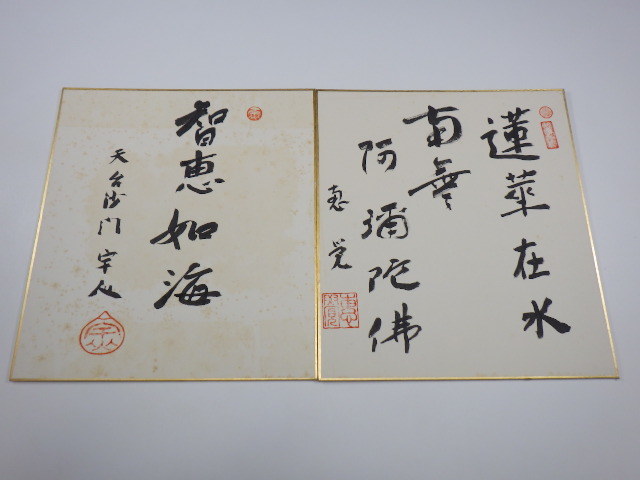 蓮華在水
南無
阿彌陀佛
恵覚
智恵如海
天台沙門